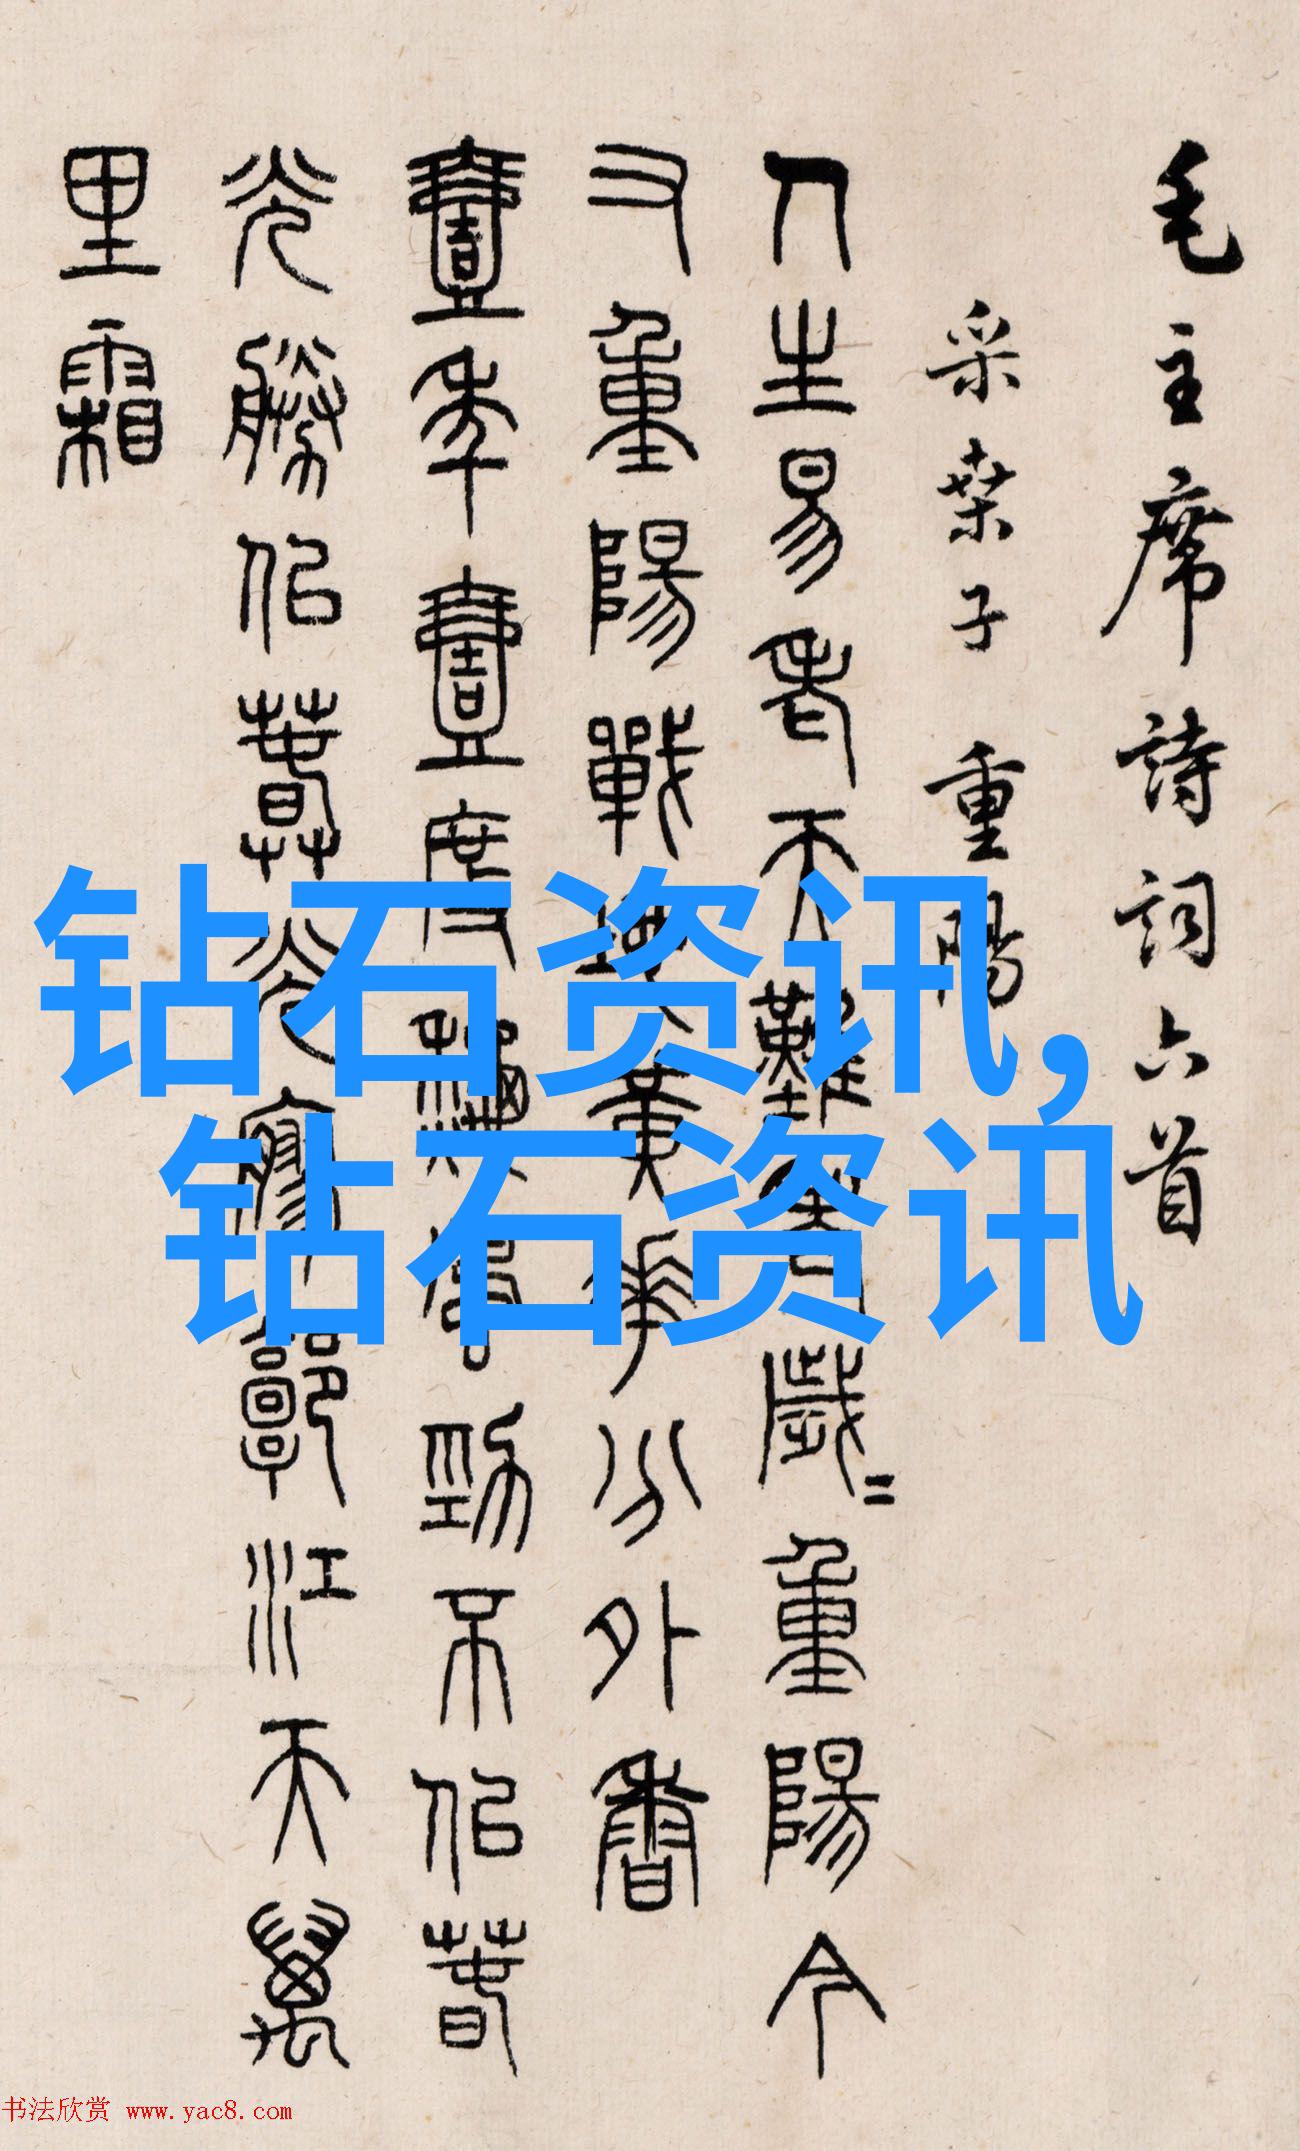 毛主席詩詞六首
采桒子 重陽
人生易老天難老歲〻重陽今
又重陽戰地黃華分外香
壹年壹度秋風勁不佀春
光勝佀春光寥郭江天萬
里霜
钻石资讯,
钻石资讯
书法欣赏 www.yac8.com